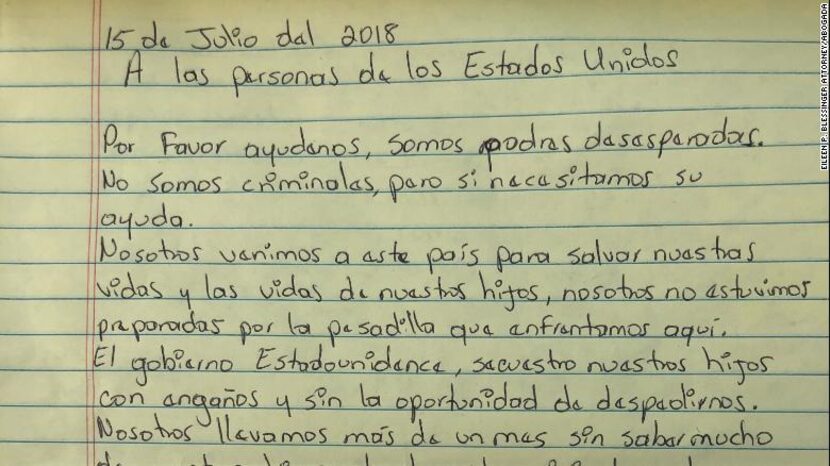 15 de Julio del 2018
A las personas de los Estados Unidos
Por Favor ayudenos, somos padres desesperadas.
No somos criminales, pero si necesitamos su
ayuda.
Nosotros venimos a este país para salvar nuestras
vidas y las vidas de nuestros hijos, nosotros no estuvimos
preparadas por la pesadilla que enfrentamos aquí.
El gobierno Estadounidence, secuestro nuestros hijos
con engaños y sin la oportunidad de despedirnos.
Nosotros llevamos más de un mes sin saber mucho
EILEEN P. BLESSINGER ATTORNEY/ABOGADA